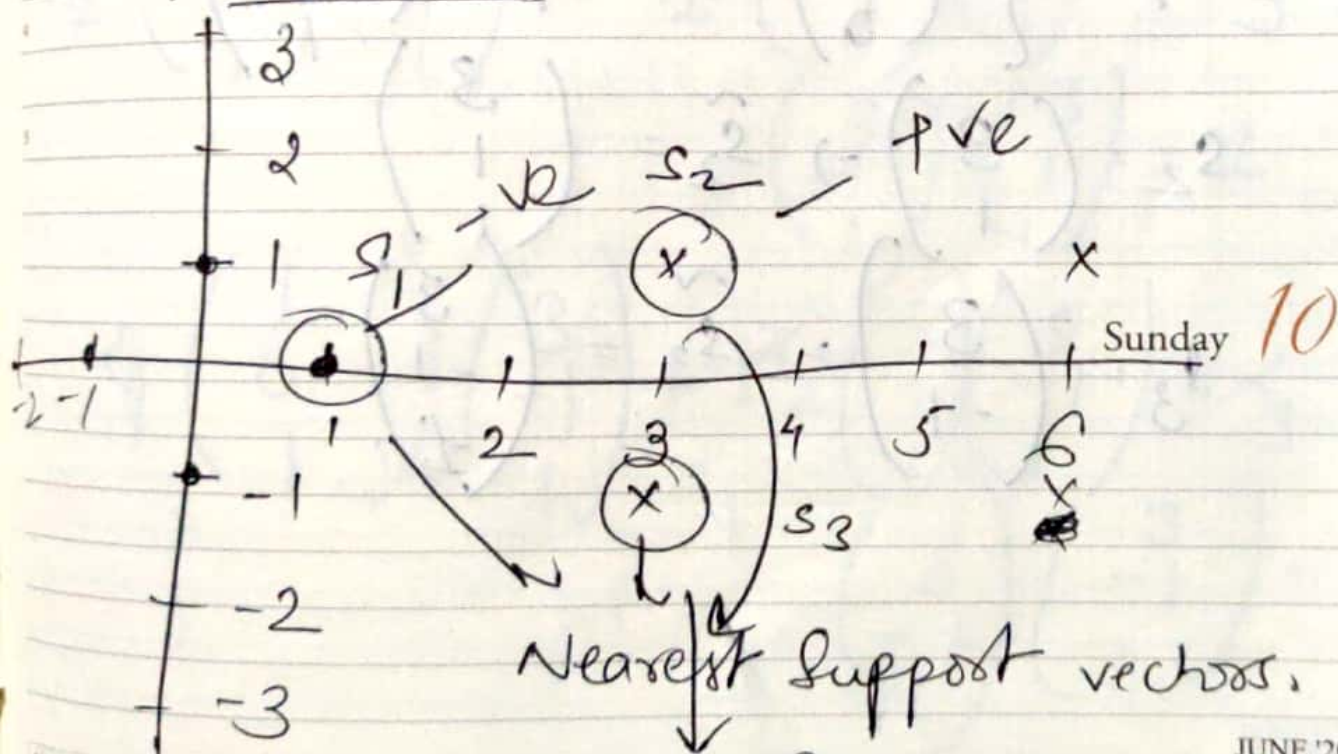 3
2
-ve S2 +ve
1 S1 x x
Sunday 10
-2 -1 1 2 3 4 5 6
-1 x x
S3
-2
Nearest Support vectors.
-3
JUNE '2